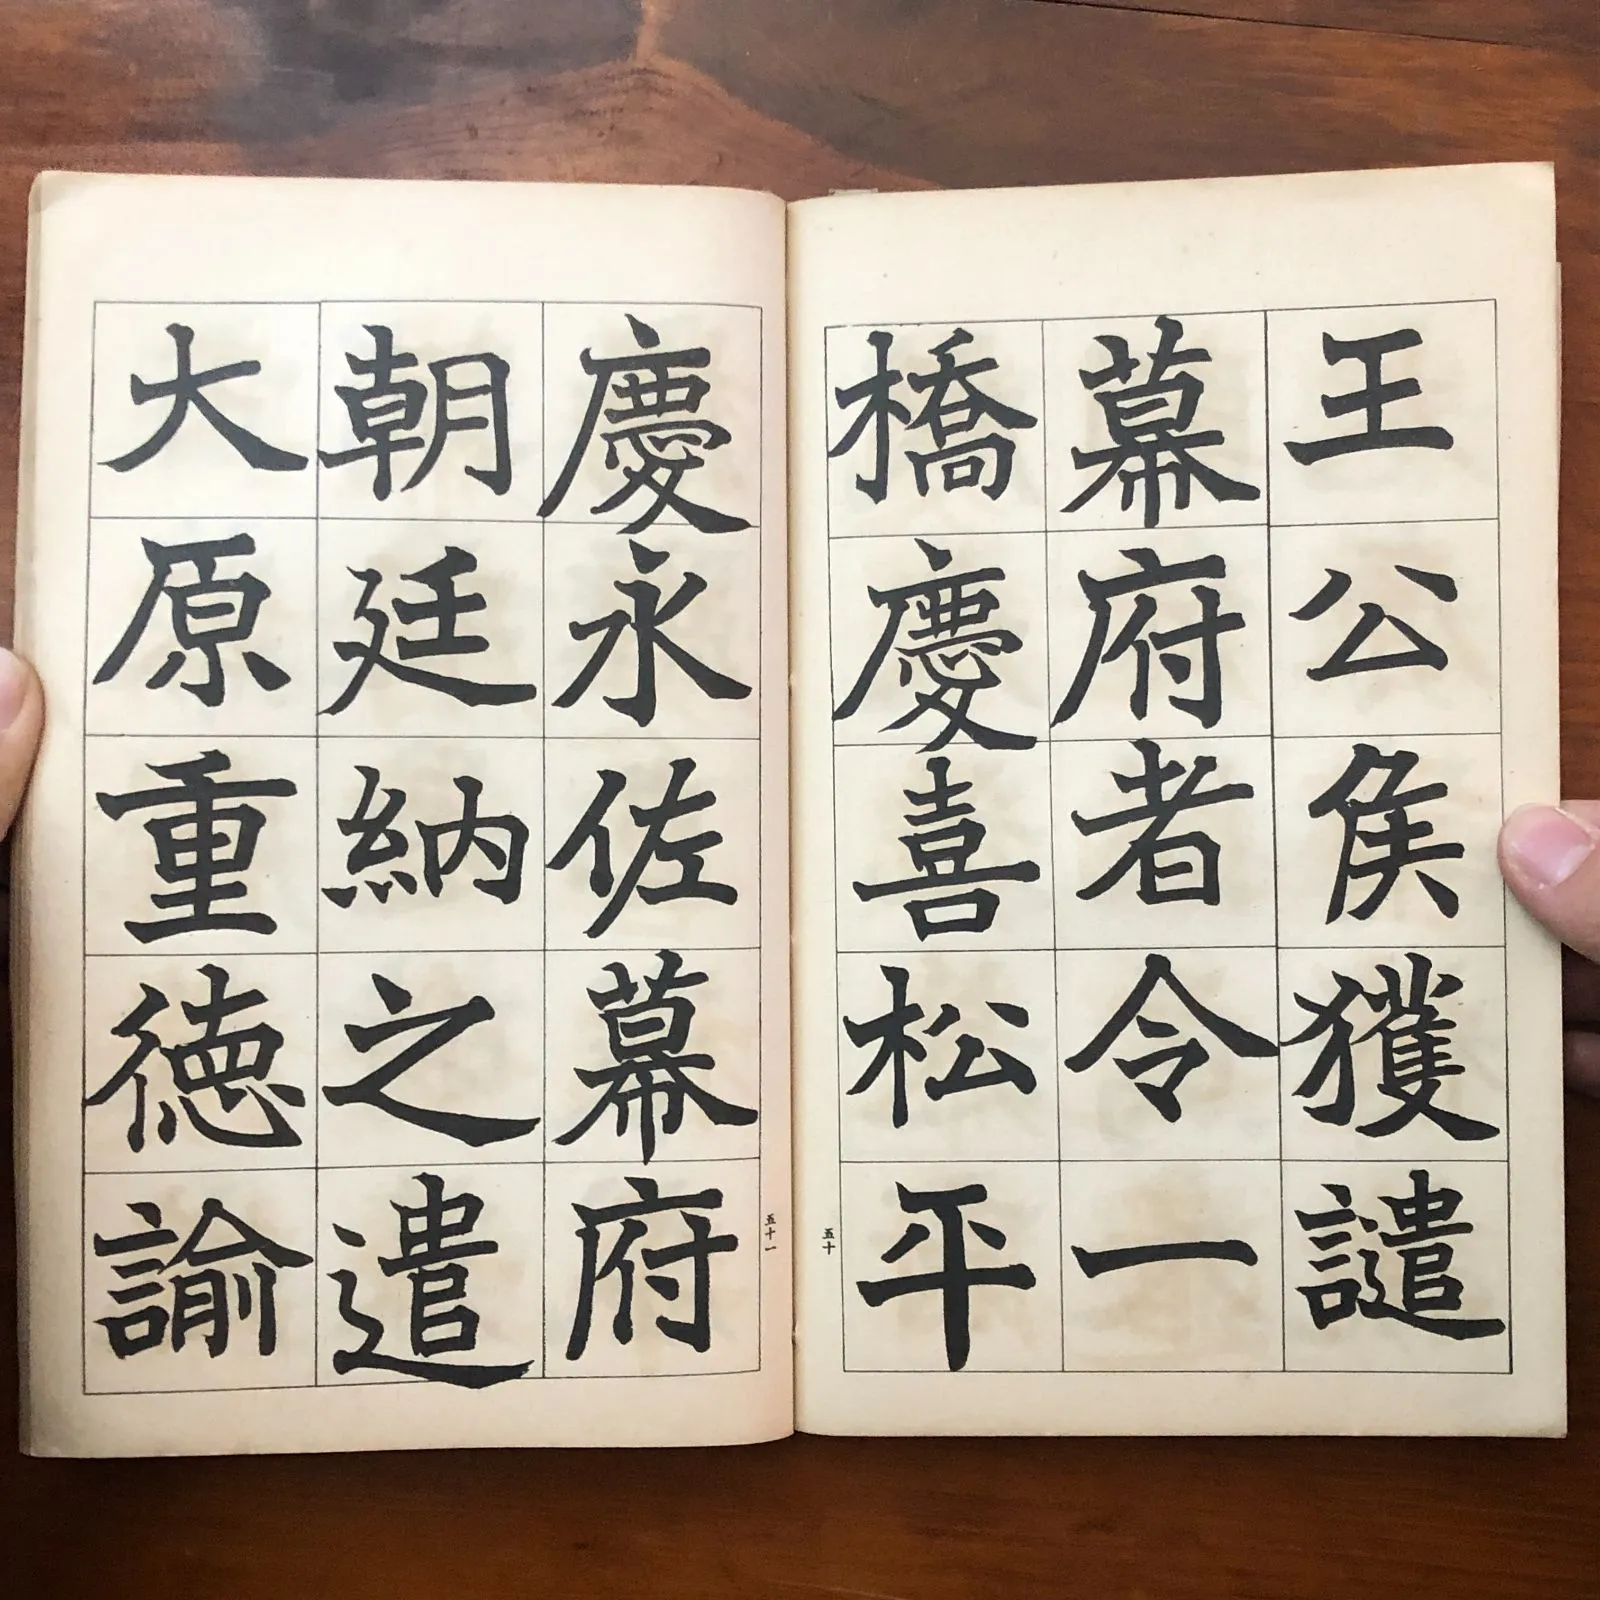 王公矦獲譴
幕府者令一
橋慶喜松平
五十
慶永佐幕府
朝廷納之遣
大原重徳諭
五十一